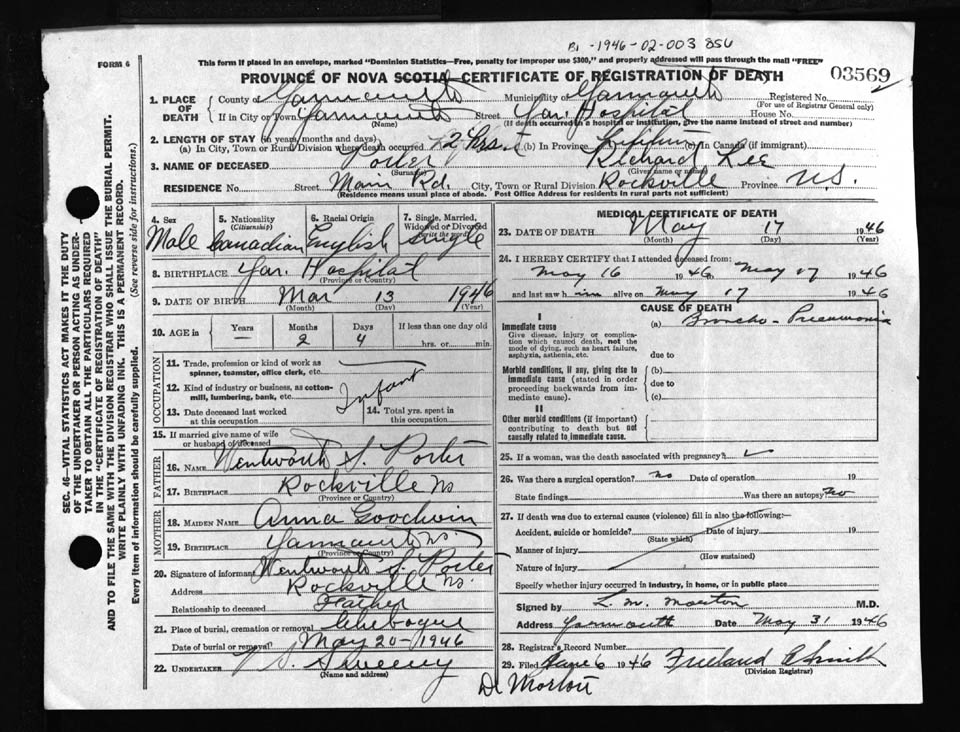 B1 -1946-02-003856
This form if placed in an envelope, marked "Dominion Statistics—Free, penalty for improper use $300," and properly addressed will pass through the mail "FREE"
FORM 6
PROVINCE OF NOVA SCOTIA—CERTIFICATE OF REGISTRATION OF DEATH
03569
1. PLACE OF DEATH
County Yarmouth Municipality of Yarmouth Registered No.
(For use of Registrar General only)
If in City or Town Yarmouth Street Yar. Hospital House No.
(If death occurred in a hospital or institution, give the name instead of street and number)
2. LENGTH OF STAY (in years, months and days)
(a) In City, Town or Rural Division where death occurred 12 hrs. (b) In Province Lifetime (c) In Canada (if immigrant)
3. NAME OF DECEASED Porter Richard Lee
(Surname) (Given name or names)
RESIDENCE No. Street Main Rd. City, Town or Rural Division Rockville Province N.S.
(Residence means usual place of abode. Post Office Address for residents in rural parts not sufficient)
4. Sex
Male
5. Nationality (Citizenship)
Canadian
6. Racial Origin
English
7. Single, Married, Widowed or Divorced (write the word)
Single
8. BIRTHPLACE Yar. Hospital
(Province or Country)
9. DATE OF BIRTH Mar 13 1946
(Month) (Day) (Year)
10. AGE in Years Months Days If less than one day old
— 2 4 hrs. or min.
OCCUPATION
11. Trade, profession or kind of work as spinner, teamster, office clerk, etc.
12. Kind of industry or business, as cotton-mill, lumbering, bank, etc.
Infant
13. Date deceased last worked at this occupation
14. Total yrs. spent in this occupation
15. If married give name of wife or husband of deceased
FATHER
16. NAME Wentworth S. Porter
17. BIRTHPLACE Rockville NS
(Province or Country)
MOTHER
18. MAIDEN NAME Anna Goodwin
19. BIRTHPLACE Yarmouth NS.
(Province or Country)
20. Signature of informant Wentworth S. Porter
Address Rockville NS.
Relationship to deceased Father
21. Place of burial, cremation or removal Chebogue
Date of burial or removal May 20 - 1946
22. UNDERTAKER Sweeny
(Name and address)
MEDICAL CERTIFICATE OF DEATH
23. DATE OF DEATH May 17 1946
(Month) (Day) (Year)
24. I HEREBY CERTIFY that I attended deceased from:
May 16 1946 to May 17 1946
and last saw him alive on May 17 1946
CAUSE OF DEATH
I
Immediate cause (a) Broncho-Pneumonia
Give disease, injury or complication which caused death, not the mode of dying, such as heart failure, asphyxia, asthenia, etc.
due to
Morbid conditions, if any, giving rise to immediate cause (stated in order proceeding backwards from immediate cause).
(b)
due to
(c)
II
Other morbid conditions (if important) contributing to death but not causally related to immediate cause.
25. If a woman, was the death associated with pregnancy?
26. Was there a surgical operation? no Date of operation 19
State findings Was there an autopsy? no
27. If death was due to external causes (violence) fill in also the following:—
Accident, suicide or homicide? Date of injury 19
(State which)
Manner of injury
(How sustained)
Nature of injury
Specify whether injury occurred in industry, in home, or in public place
Signed by L. M. Morton M.D.
Address Yarmouth Date May 31 1946
28. Registrar's Record Number
29. Filed June 6 1946 Freeland
(Division Registrar)
Dr Morton
SEC. 46—VITAL STATISTICS ACT MAKES IT THE DUTY
OF THE UNDERTAKER OR PERSON ACTING AS UNDER-
TAKER TO OBTAIN ALL THE PARTICULARS REQUIRED
IN THE "CERTIFICATE OF REGISTRATION OF DEATH"
AND TO FILE THE SAME WITH THE DIVISION REGISTRAR WHO SHALL ISSUE THE BURIAL PERMIT.
WRITE PLAINLY WITH UNFADING INK. THIS IS A PERMANENT RECORD.
Every item of information should be carefully supplied. (See reverse side for instructions.)